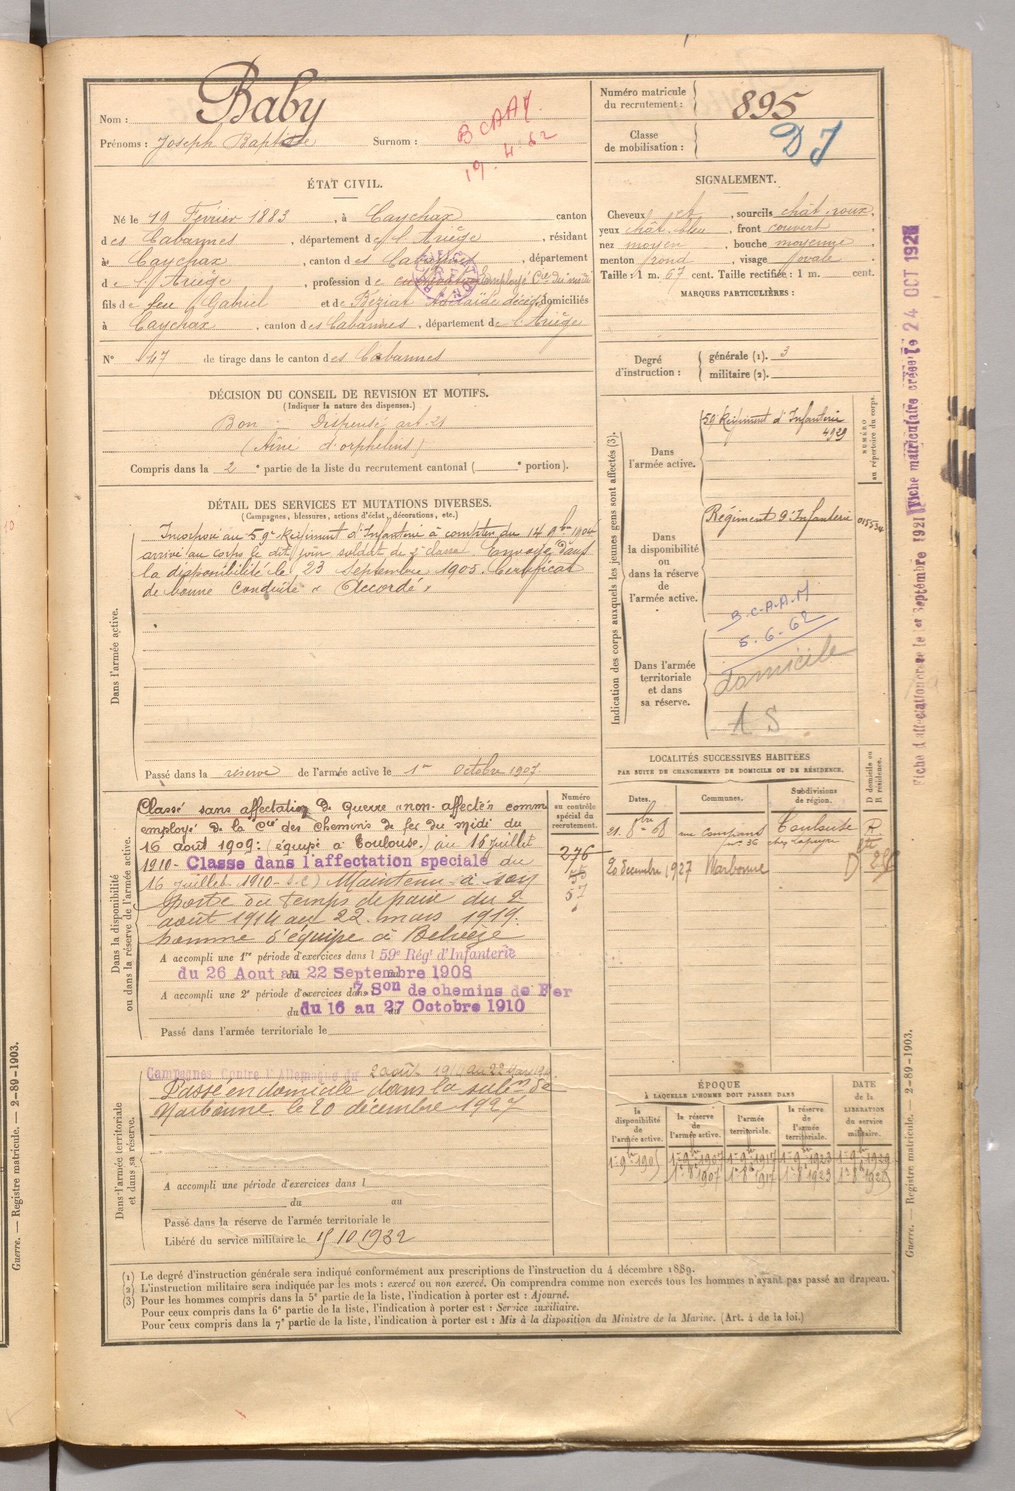 Nom : Baby
Prénoms : Joseph Baptiste Surnom :
BCAAM
19.4.62
Numéro matricule du recrutement : 895
Classe de mobilisation : DJ
ÉTAT CIVIL.
Né le 19 Février 1883, à Caychax canton
des Cabannes, département de l'Ariège, résidant
à Caychax, canton des Cabannes, département
de l'Ariège, profession de employé Cie du midi
fils de feu Gabriel et de Béziat Adélaïde décéd. domiciliés
à Caychax, canton des Cabannes, département de l'Ariège
N° 47 de tirage dans le canton des Cabannes
DÉCISION DU CONSEIL DE REVISION ET MOTIFS.
(Indiquer la nature des dispenses.)
Bon : Dispensé art. 21
(Aîné d'orphelins)
Compris dans la 2e partie de la liste du recrutement cantonal ( e portion).
DÉTAIL DES SERVICES ET MUTATIONS DIVERSES.
(Campagnes, blessures, actions d'éclat, décorations, etc.)
Dans l'armée active.
Incorporé au 59e Régiment d'Infanterie à compter du 14 9bre 1904
arrivé au corps le dit jour soldat de 2e classe. Envoyé dans
la disponibilité le 23 Septembre 1905. Certificat
de bonne conduite « Accordé »
Passé dans la réserve de l'armée active le 1er Octobre 1907
Dans la disponibilité ou dans la réserve de l'armée active.
Classé sans affectation de guerre "non affectés" comme
employé de la Cie des chemins de fer du Midi du
16 août 1909: (équipé à Toulouse) au 16 juillet
1910 - Classé dans l'affectation spéciale du
16 juillet 1910 - S.C) Maintenu à son
poste du temps de paix du 2
août 1914 au 22 mars 1919.
homme d'équipe à Belvèze
A accompli une 1re période d'exercices dans l 59e Régt d'Infanterie
du 26 Aout au 22 Septembre 1908
A accompli une 2e période d'exercices dans 7 Son de chemins de Fer
du 16 au 27 Octobre 1910
Passé dans l'armée territoriale le
Numéro au contrôle spécial du recrutement.
276
55
57
Dans l'armée territoriale et dans sa réserve.
Campagnes Contre l'Allemagne du 2 août 1914 au 22 mars 1919
Passé en domicile dans la subon de
Narbonne le 20 décembre 1927
A accompli une période d'exercices dans l
du au
Passé dans la réserve de l'armée territoriale le
Libéré du service militaire le 15 10 1932
SIGNALEMENT.
Cheveux ch, sourcils chât. roux,
yeux chât. bleu, front couvert
nez moyen, bouche moyenne
menton rond, visage ovale
Taille : 1 m. 67 cent. Taille rectifiée : 1 m. cent.
MARQUES PARTICULIÈRES :
Degré d'instruction : générale (1). 3
militaire (2).
Indication des corps auxquels les jeunes gens sont affectés (3).
NUMÉRO au répertoire du corps.
Dans l'armée active.
59 Régiment d'Infanterie
4929
Dans la disponibilité ou dans la réserve de l'armée active.
Régiment d'Infanterie
B.C.A.A.M
5.6.62
Dans l'armée territoriale et dans sa réserve.
domicile
AS
LOCALITÉS SUCCESSIVES HABITÉES
PAR SUITE DE CHANGEMENTS DE DOMICILE OU DE RÉSIDENCE.
Dates. Communes. Subdivisions de région. D domicile ou R résidence.
21. 8bre 08 rue Compans Toulouse R
n° 36
20 décembre 1927 Narbonne D
ÉPOQUE
À LAQUELLE L'HOMME DOIT PASSER DANS
la disponibilité de l'armée active. la réserve de l'armée active. l'armée territoriale. la réserve de l'armée territoriale. DATE de la LIBÉRATION du service militaire.
1er 9bre 1905 1er 9bre 1907 1er 9bre 1917 1er 9bre 1923 1er 9bre 1929
1er 8bre 1907 1er 8bre 1917 1er 8bre 1923 1er 8bre 1929
(1) Le degré d'instruction générale sera indiqué conformément aux prescriptions de l'instruction du 4 décembre 1889.
(2) L'instruction militaire sera indiquée par les mots : exercé ou non exercé. On comprendra comme non exercés tous les hommes n'ayant pas passé au drapeau.
(3) Pour les hommes compris dans la 5e partie de la liste, l'indication à porter est : Ajourné.
Pour ceux compris dans la 6e partie de la liste, l'indication à porter est : Service auxiliaire.
Pour ceux compris dans la 7e partie de la liste, l'indication à porter est : Mis à la disposition du Ministre de la Marine. (Art. 4 de la loi.)
Guerre. — Registre matricule. — 2-89-1903.
Guerre. — Registre matricule. — 2-89-1903.
Fiche d'affectation créée le 1er Septembre 1921
Fiche matriculaire créée le 24 OCT 1927